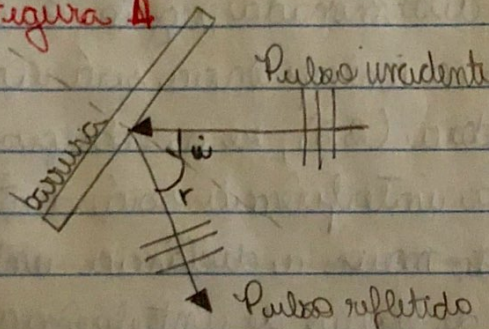 Figura A
Pulso incidente
barreira
i
r
Pulso refletido